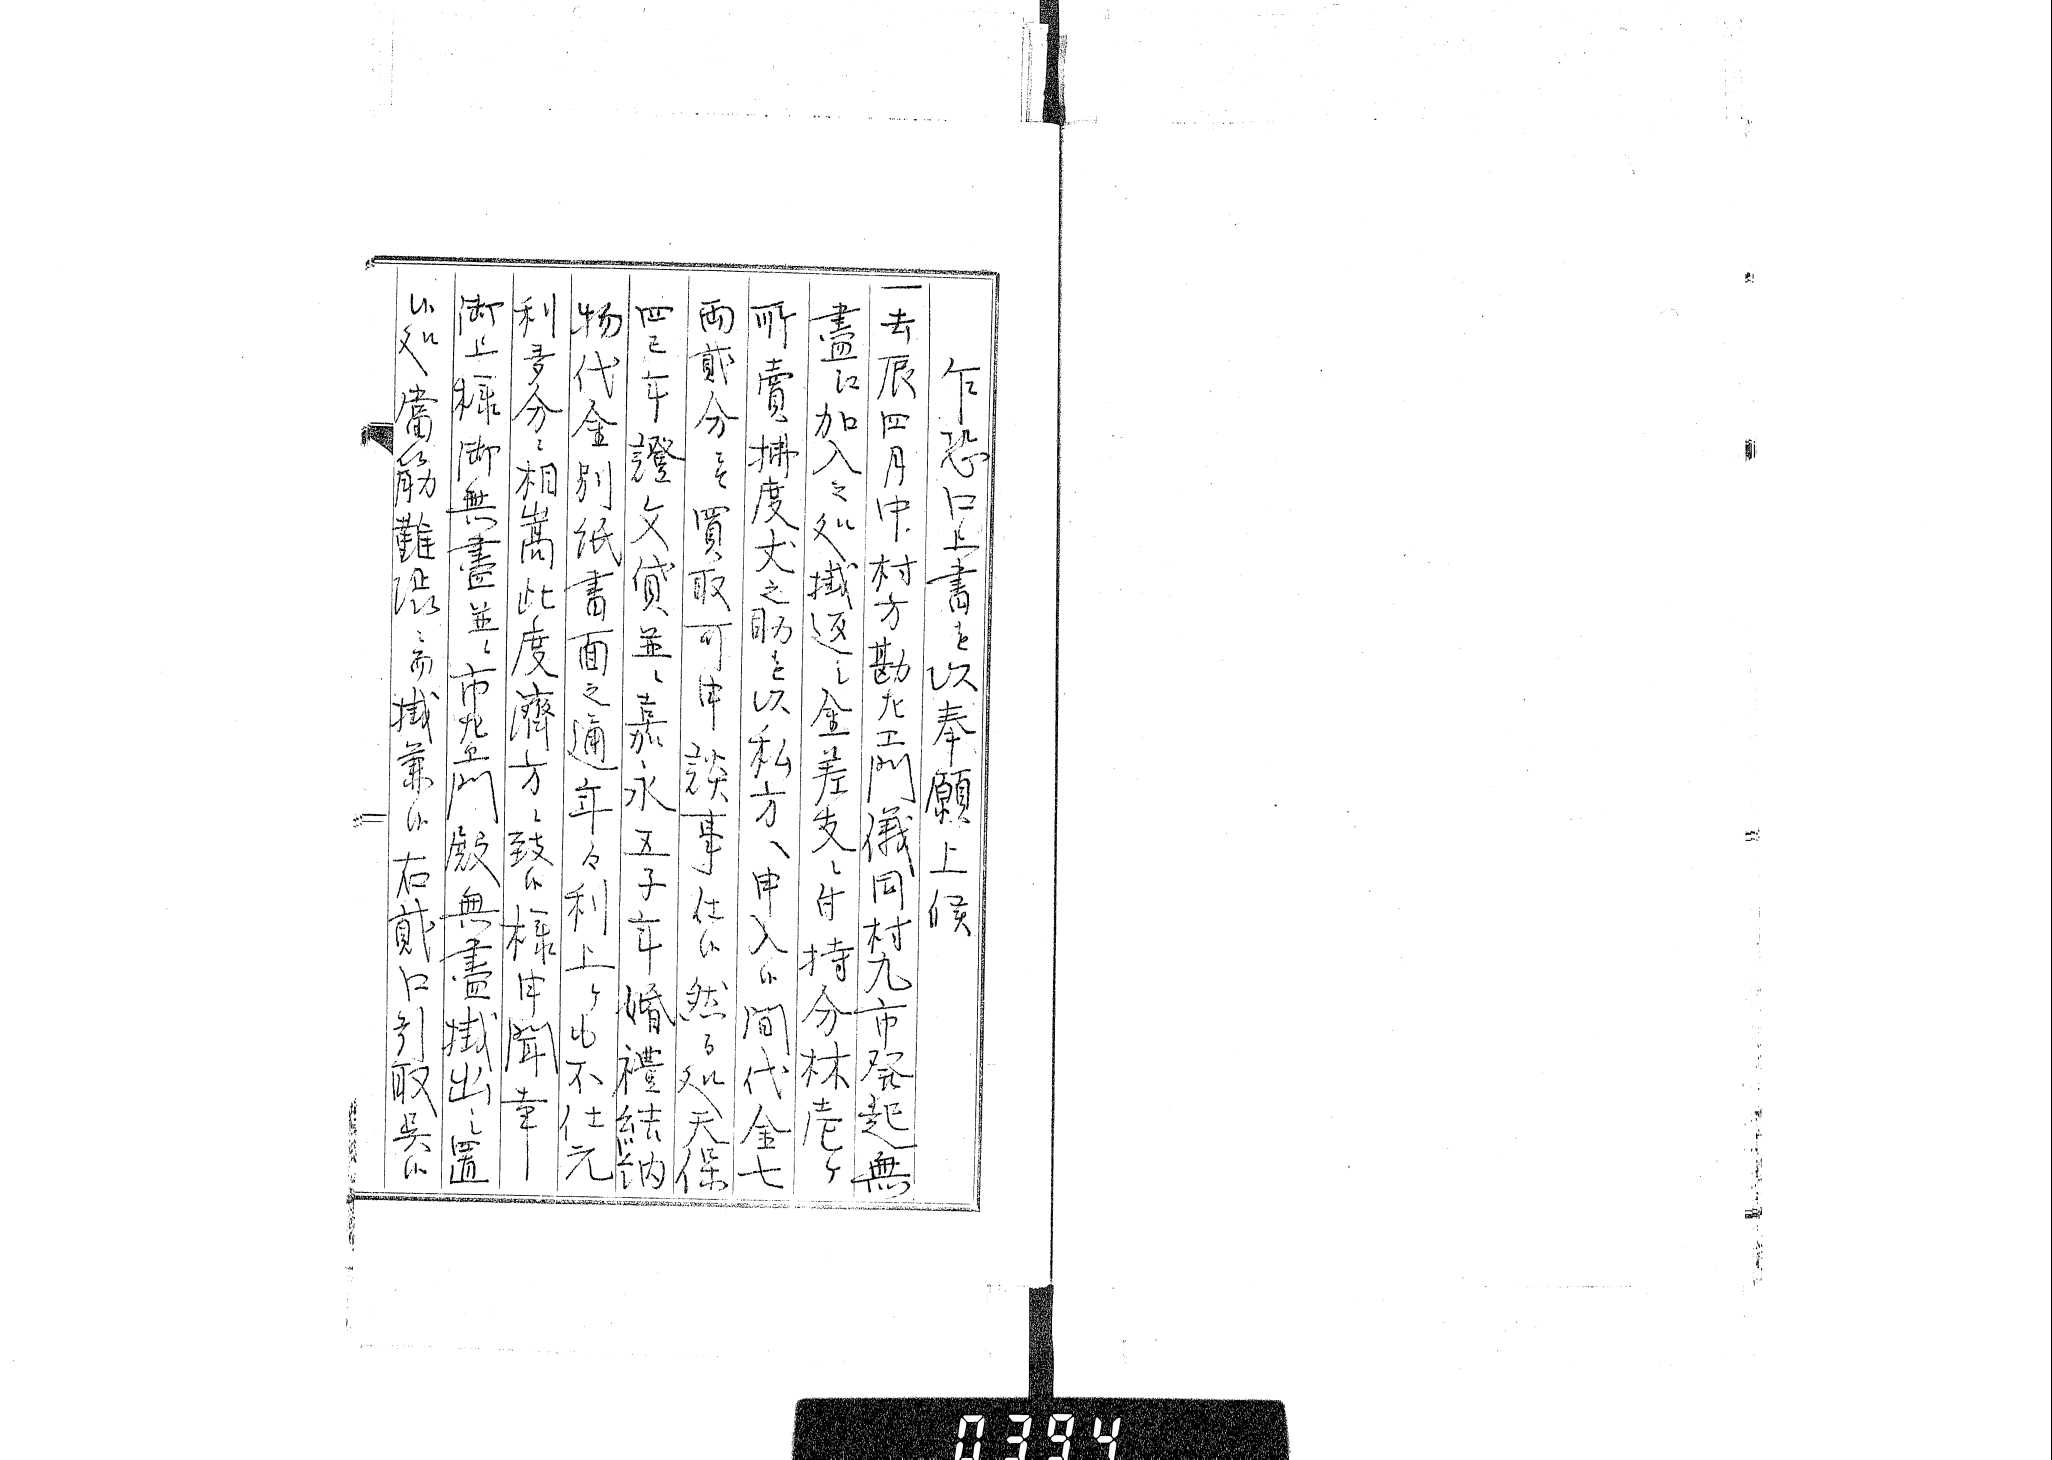 乍恐口上書を以奉願上候
一去辰四月中村方勘左エ門儀同村九市発起無
盡江加入之処掛返之金差支ニ付持分林壱ヶ
所賣拂度丈之助を以私方へ申入候間代金七
両貳分ニ買取可申談事仕候然る処天保
四巳年證文貸並ニ嘉永五子年婚禮結納
物代金別紙書面之通年々利上ケも不仕元
利多分ニ相嵩此度濟方ニ致候様申聞幸
御上様御無盡並ニ市左エ門殿無盡掛出シ置
候処當節難渋ニ而掛兼候右貳口引取呉候
0394